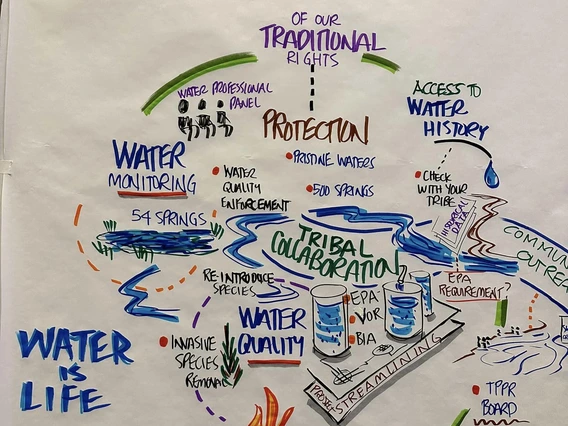 OF OUR
TRADITIONAL
RIGHTS
WATER PROFESSIONAL
PANEL
PROTECTION
PRISTINE WATERS
500 SPRINGS
ACCESS TO
WATER
HISTORY
CHECK
WITH YOUR
TRIBE
HISTORICAL
DATA
WATER
MONITORING
54 SPRINGS
WATER
QUALITY
ENFORCEMENT
TRIBAL
COLLABORATION
RE-INTRODUCE
SPECIES
WATER
QUALITY
INVASIVE
SPECIES
REMOVAL
EPA
BIA
STREAMLINING
EPA
REQUIREMENT?
TPPR
BOARD
WATER
IS
LIFE